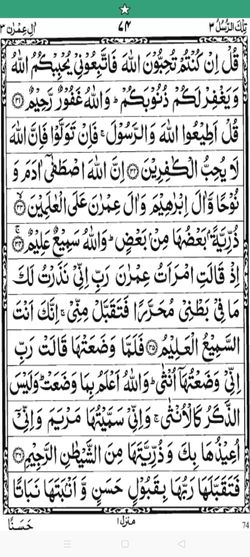 تِلْكَ الرُّسُلُ ٣ ٧٤ اٰلِ عِمْرٰن ٣
قُلْ اِنْ كُنْتُمْ تُحِبُّوْنَ اللّٰهَ فَاتَّبِعُوْنِيْ يُحْبِبْكُمُ اللّٰهُ
وَيَغْفِرْ لَكُمْ ذُنُوْبَكُمْ ؕ وَاللّٰهُ غَفُوْرٌ رَّحِيْمٌ ﴿٣١﴾
قُلْ اَطِيْعُوا اللّٰهَ وَالرَّسُوْلَ ۚ فَاِنْ تَوَلَّوْا فَاِنَّ اللّٰهَ
لَا يُحِبُّ الْكٰفِرِيْنَ ﴿٣٢﴾ اِنَّ اللّٰهَ اصْطَفٰٓى اٰدَمَ وَ
نُوْحًا وَّاٰلَ اِبْرٰهِيْمَ وَاٰلَ عِمْرٰنَ عَلَى الْعٰلَمِيْنَ ﴿٣٣﴾
ذُرِّيَّةًۢ بَعْضُهَا مِنْۢ بَعْضٍ ؕ وَاللّٰهُ سَمِيْعٌ عَلِيْمٌ ﴿٣٤﴾
اِذْ قَالَتِ امْرَاَتُ عِمْرٰنَ رَبِّ اِنِّيْ نَذَرْتُ لَكَ
مَا فِيْ بَطْنِيْ مُحَرَّرًا فَتَقَبَّلْ مِنِّيْ ۚ اِنَّكَ اَنْتَ
السَّمِيْعُ الْعَلِيْمُ ﴿٣٥﴾ فَلَمَّا وَضَعَتْهَا قَالَتْ رَبِّ
اِنِّيْ وَضَعْتُهَاۤ اُنْثٰى ؕ وَاللّٰهُ اَعْلَمُ بِمَا وَضَعَتْ ؕ وَلَيْسَ
الذَّكَرُ كَالْاُنْثٰى ۚ وَاِنِّيْ سَمَّيْتُهَا مَرْيَمَ وَاِنِّيْۤ
اُعِيْذُهَا بِكَ وَذُرِّيَّتَهَا مِنَ الشَّيْطٰنِ الرَّجِيْمِ ﴿٣٦﴾
فَتَقَبَّلَهَا رَبُّهَا بِقَبُوْلٍ حَسَنٍ وَّاَنْۢبَتَهَا نَبَاتًا
حَسَنًا
منزل ١
74